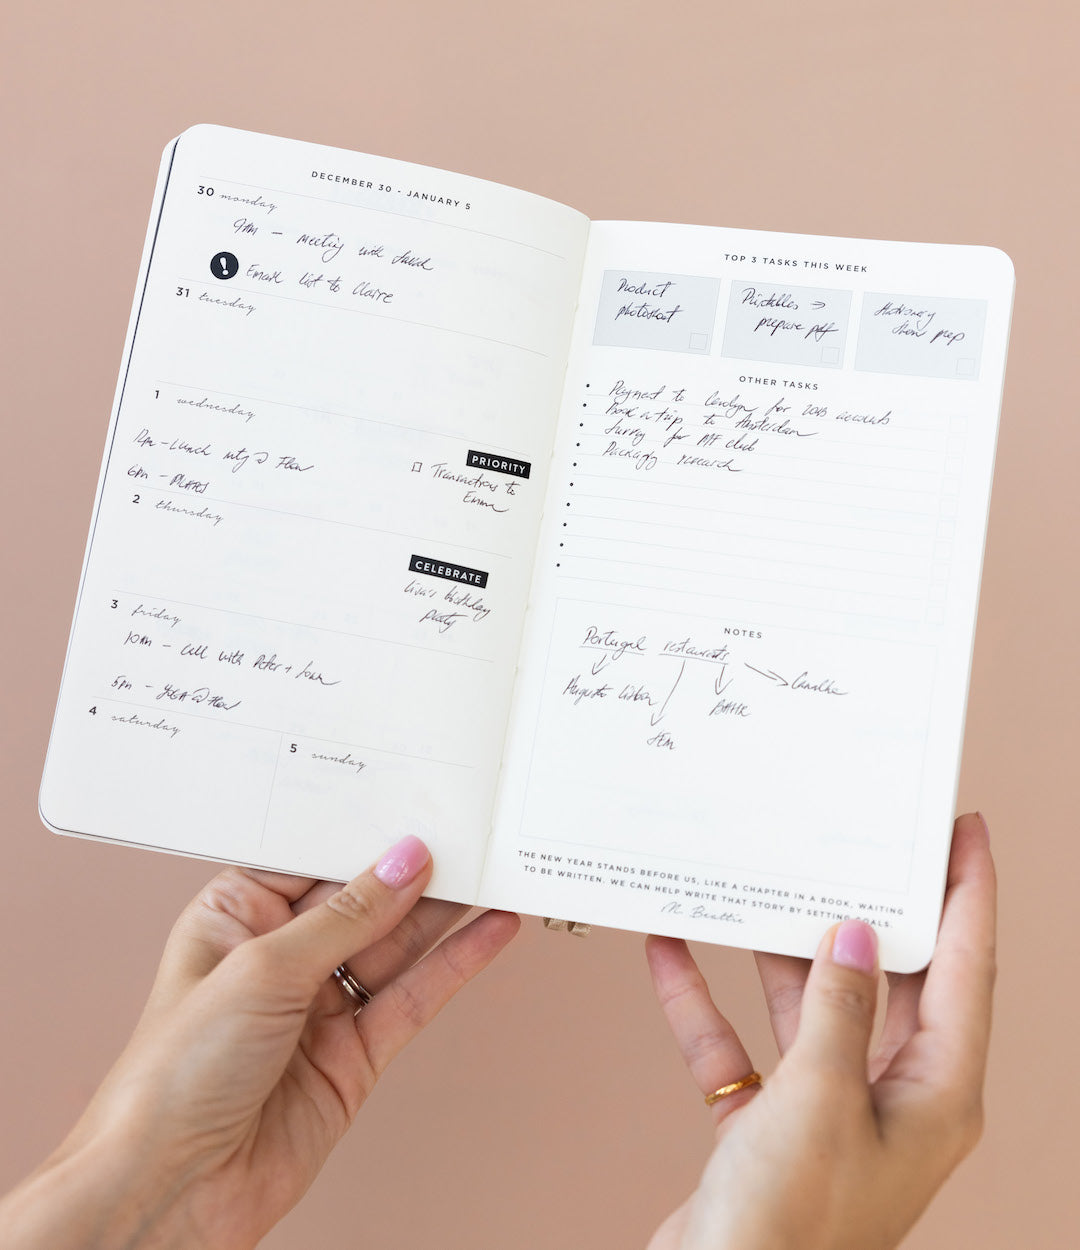 DECEMBER 30 - JANUARY 5
30 monday
9AM - meeting with Sarah
! Email list to Claire
31 tuesday
1 wednesday
12pm - Lunch mtg @ Flow
6pm - PILATES
PRIORITY
Transactions to
Emma
2 thursday
CELEBRATE
Lisa's birthday
party
3 friday
10AM - call with Peter +
5pm - YOGA @ Flow
4 saturday
5 sunday
TOP 3 TASKS THIS WEEK
Product
photoshoot
Printables →
prepare pdf
Stationery
show prep
OTHER TASKS
Payment to Carolyn for accounts
Book a trip to Amsterdam
Survey for club
Packaging research
NOTES
Portugal restaurants
Augusto Lisboa
BAHR
JEM
THE NEW YEAR STANDS BEFORE US, LIKE A CHAPTER IN A BOOK, WAITING
TO BE WRITTEN. WE CAN HELP WRITE THAT STORY BY SETTING GOALS.
M. Beattie